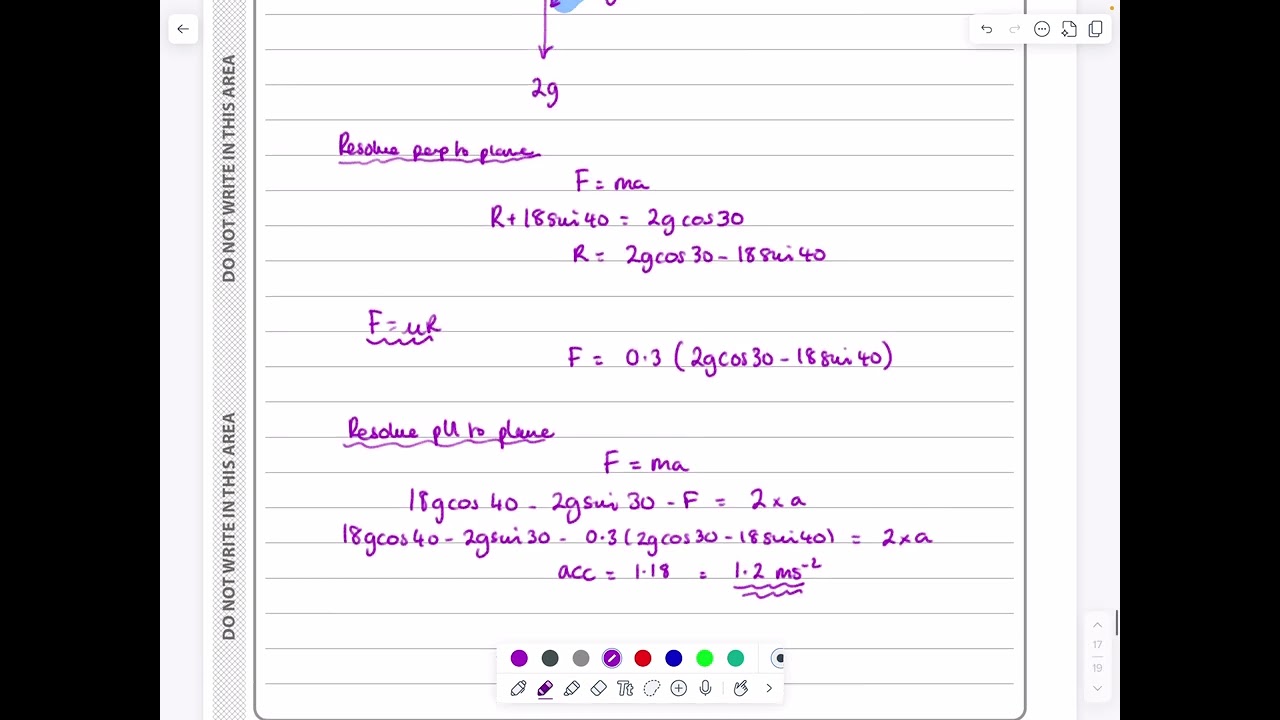 2g
Resolve perp to plane
F = ma
R + 18 sin 40 = 2g cos 30
R = 2g cos 30 - 18 sin 40
F = μR
F = 0.3 (2g cos 30 - 18 sin 40)
Resolve pll to plane
F = ma
18g cos 40 - 2g sin 30 - F = 2 × a
18g cos 40 - 2g sin 30 - 0.3 (2g cos 30 - 18 sin 40) = 2 × a
acc = 1.18 = 1.2 ms⁻²
DO NOT WRITE IN THIS AREA
DO NOT WRITE IN THIS AREA
17
19
Tt